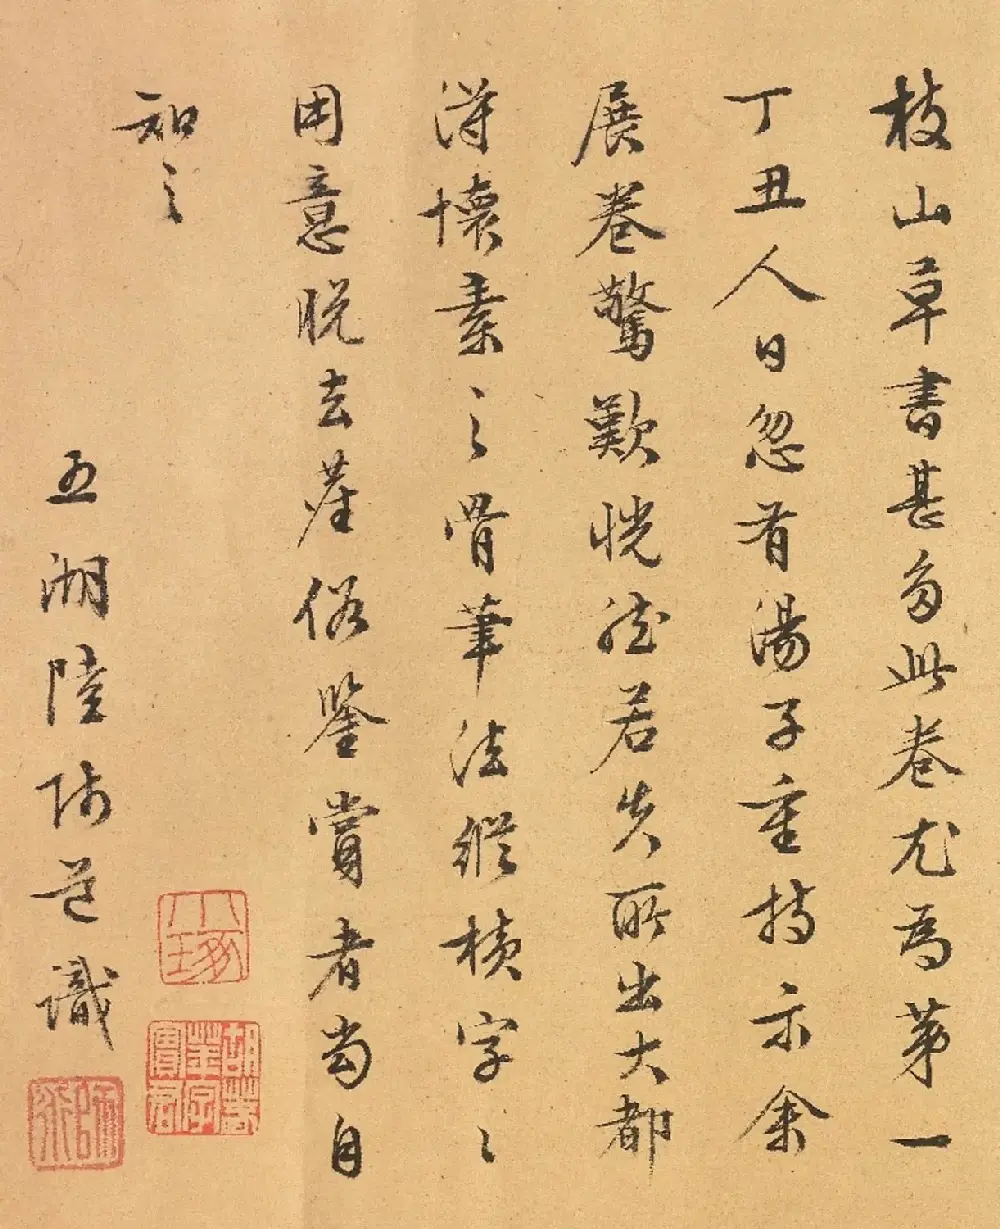 枝山草書甚多此卷尤為第一
丁丑人日忽有湯子重持示余
展卷驚歎恍然若失所出大都
得懷素之骨筆法縱横字〻
用意脱去塵俗鑒賞者當自
知之
五湖陸師道識